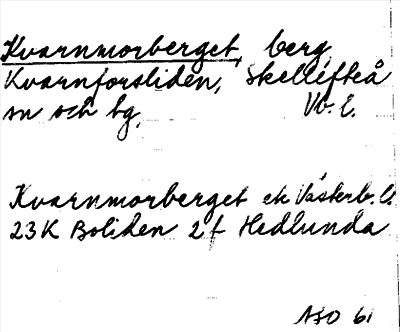 Kvarnmorberget, berg,
Kvarnforsliden, Skellefteå
sn och tg, Vb. l.
Kvarnmorberget ek Västerb. l.
23K Boliden 2 f Hedlunda
61